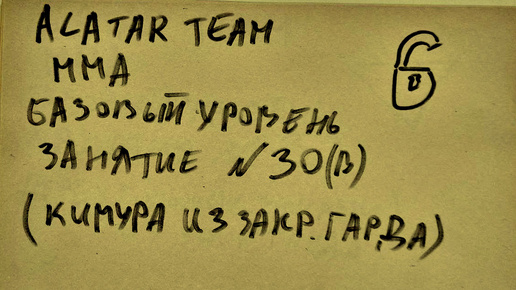 ALATAR TEAM
MMA
БАЗОВЫЙ УРОВЕНЬ
ЗАНЯТИЕ №30(В)
(КИМУРА ИЗ ЗАКР. ГАРДА)